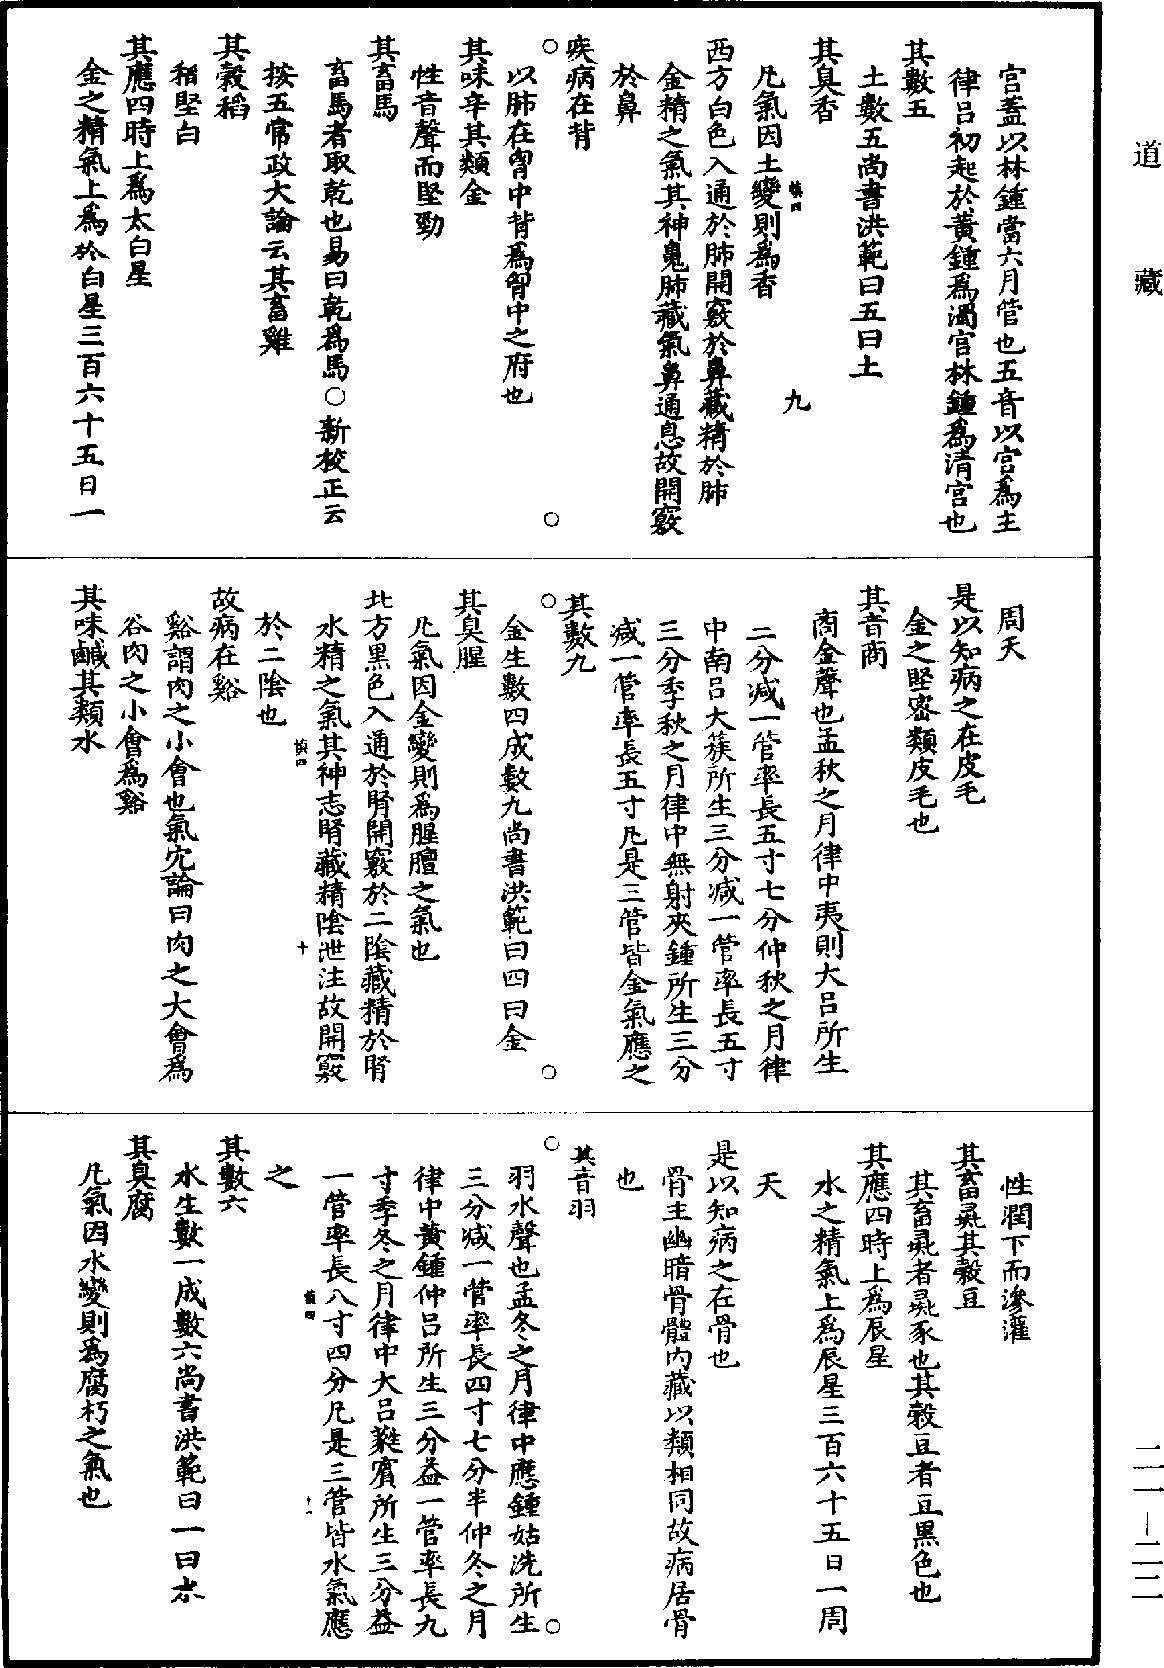 道藏
宫蓋以林鍾當六月管也五音以宫爲主
律吕初起於黄鍾爲濁宫林鍾爲清宫也
其數五
土數五尚書洪範曰五曰土
其臭香
九
凡氣因土變則爲香
西方白色入通於肺開竅於鼻藏精於肺
金精之氣其神魄肺藏氣鼻通息故開竅
於鼻
疾病在背
以肺在胷中背爲胷中之府也
其味辛其類金
性音聲而堅勁
其畜馬
畜馬者取乾也易曰乾爲馬○新校正云
按五常政大論云其畜雞
其穀稻
稻堅白
其應四時上爲太白星
金之精氣上爲太白星三百六十五日一
周天
是以知病之在皮毛
金之堅密類皮毛也
其音商
商金聲也孟秋之月律中夷則大吕所生
二分减一管率長五寸七分仲秋之月律
中南吕大蔟所生三分减一管率長五寸
三分季秋之月律中無射夾鍾所生三分
减一管率長五寸凡是三管皆金氣應之
其數九
金生數四成數九尚書洪範曰四曰金
其臭腥
凡氣因金變則爲腥膻之氣也
北方黑色入通於腎開竅於二陰藏精於腎
水精之氣其神志腎藏精陰泄注故開竅
十
於二陰也
故病在谿
谿謂肉之小會也氣穴論曰肉之大會爲
谷肉之小會爲谿
其味鹹其類水
性潤下而滲灌
其畜彘其穀豆
其畜彘者彘豕也其穀豆者豆黑色也
其應四時上爲辰星
水之精氣上爲辰星三百六十五日一周
天
是以知病之在骨也
骨主幽暗骨體内藏以類相同故病居骨
也
其音羽
羽水聲也孟冬之月律中應鍾姑洗所生
三分减一管率長四寸七分半仲冬之月
律中黄鍾仲吕所生三分益一管率長九
寸季冬之月律中大吕蕤賓所生三分益
一管率長八寸四分凡是三管皆水氣應
十一
之
其數六
水生數一成數六尚書洪範曰一曰水
其臭腐
凡氣因水變則爲腐朽之氣也
二一—二二